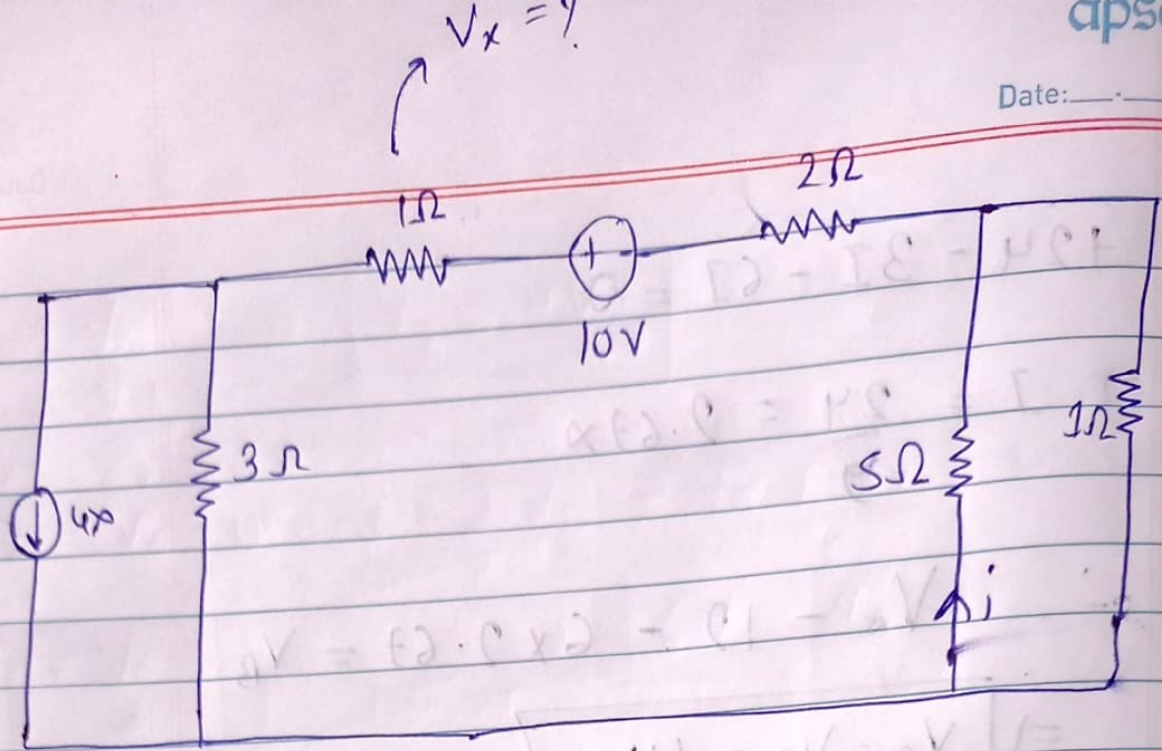 Vx = ?
aps
Date:
1Ω
2Ω
10V
3Ω
5Ω
1Ω
4x
i